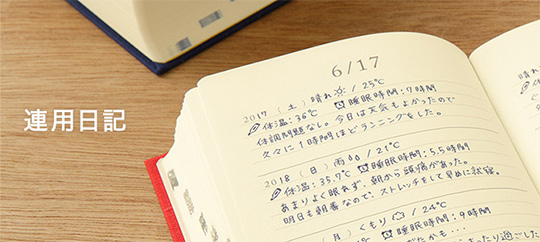 連用日記
6/17
2017 (土) 晴れ / 25℃
体温:36℃ 睡眠時間:7時間
体調問題なし。今日は天気もよかったので
久々に1時間ほどランニングをした。
2018 (日) 雨 / 21℃
体温:35.7℃ 睡眠時間:5.5時間
あまりよく眠れず、朝から頭痛があった。
明日も朝番なので、ストレッチをして早めに就寝。
(月) くもり / 24℃
睡眠時間:9時間